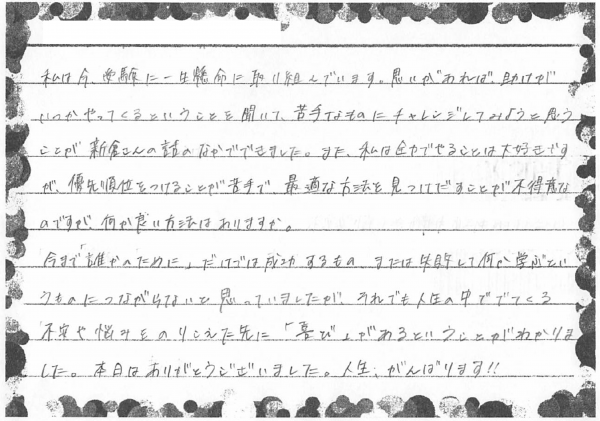 私は今、受験に一生懸命に取り組んでいます。思いがあれば、助けが
いつかやってくるということを聞いて、苦手なものにチャレンジしてみようと思う
ことが新倉さんの話のなかでできました。また、私は全力でやることは大好きです
が、優先順位をつけることが苦手で、最適な方法を見つけだすことが不得意な
のですが、何か良い方法はありますか。
今まで「誰かのために」だけでは成功するもの、または失敗して何か学ぶとい
うものにつながらないと思っていましたが、それでも人生の中ででてくる
不安や悩みをのりこえた先に「喜び」があるということがわかりま
した。本日はありがとうございました。人生、がんばります!!